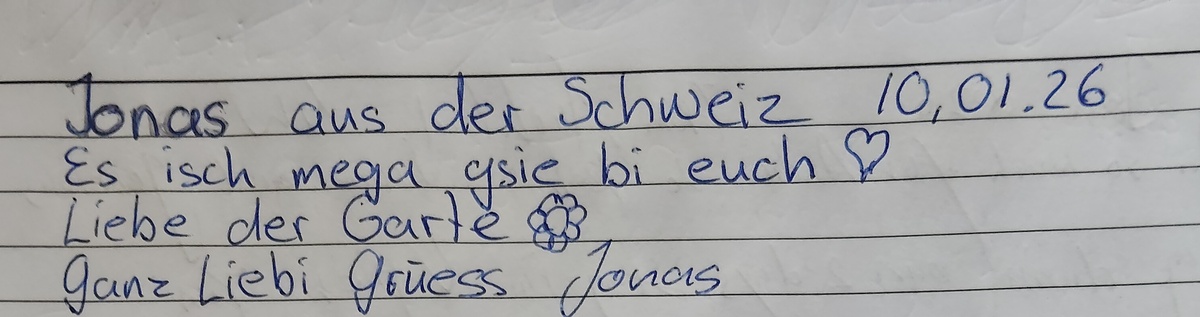 Jonas aus der Schweiz 10,01.26
Es isch mega gsie bi euch ♡
Liebe der Garte
ganz Liebi Grüess Jonas